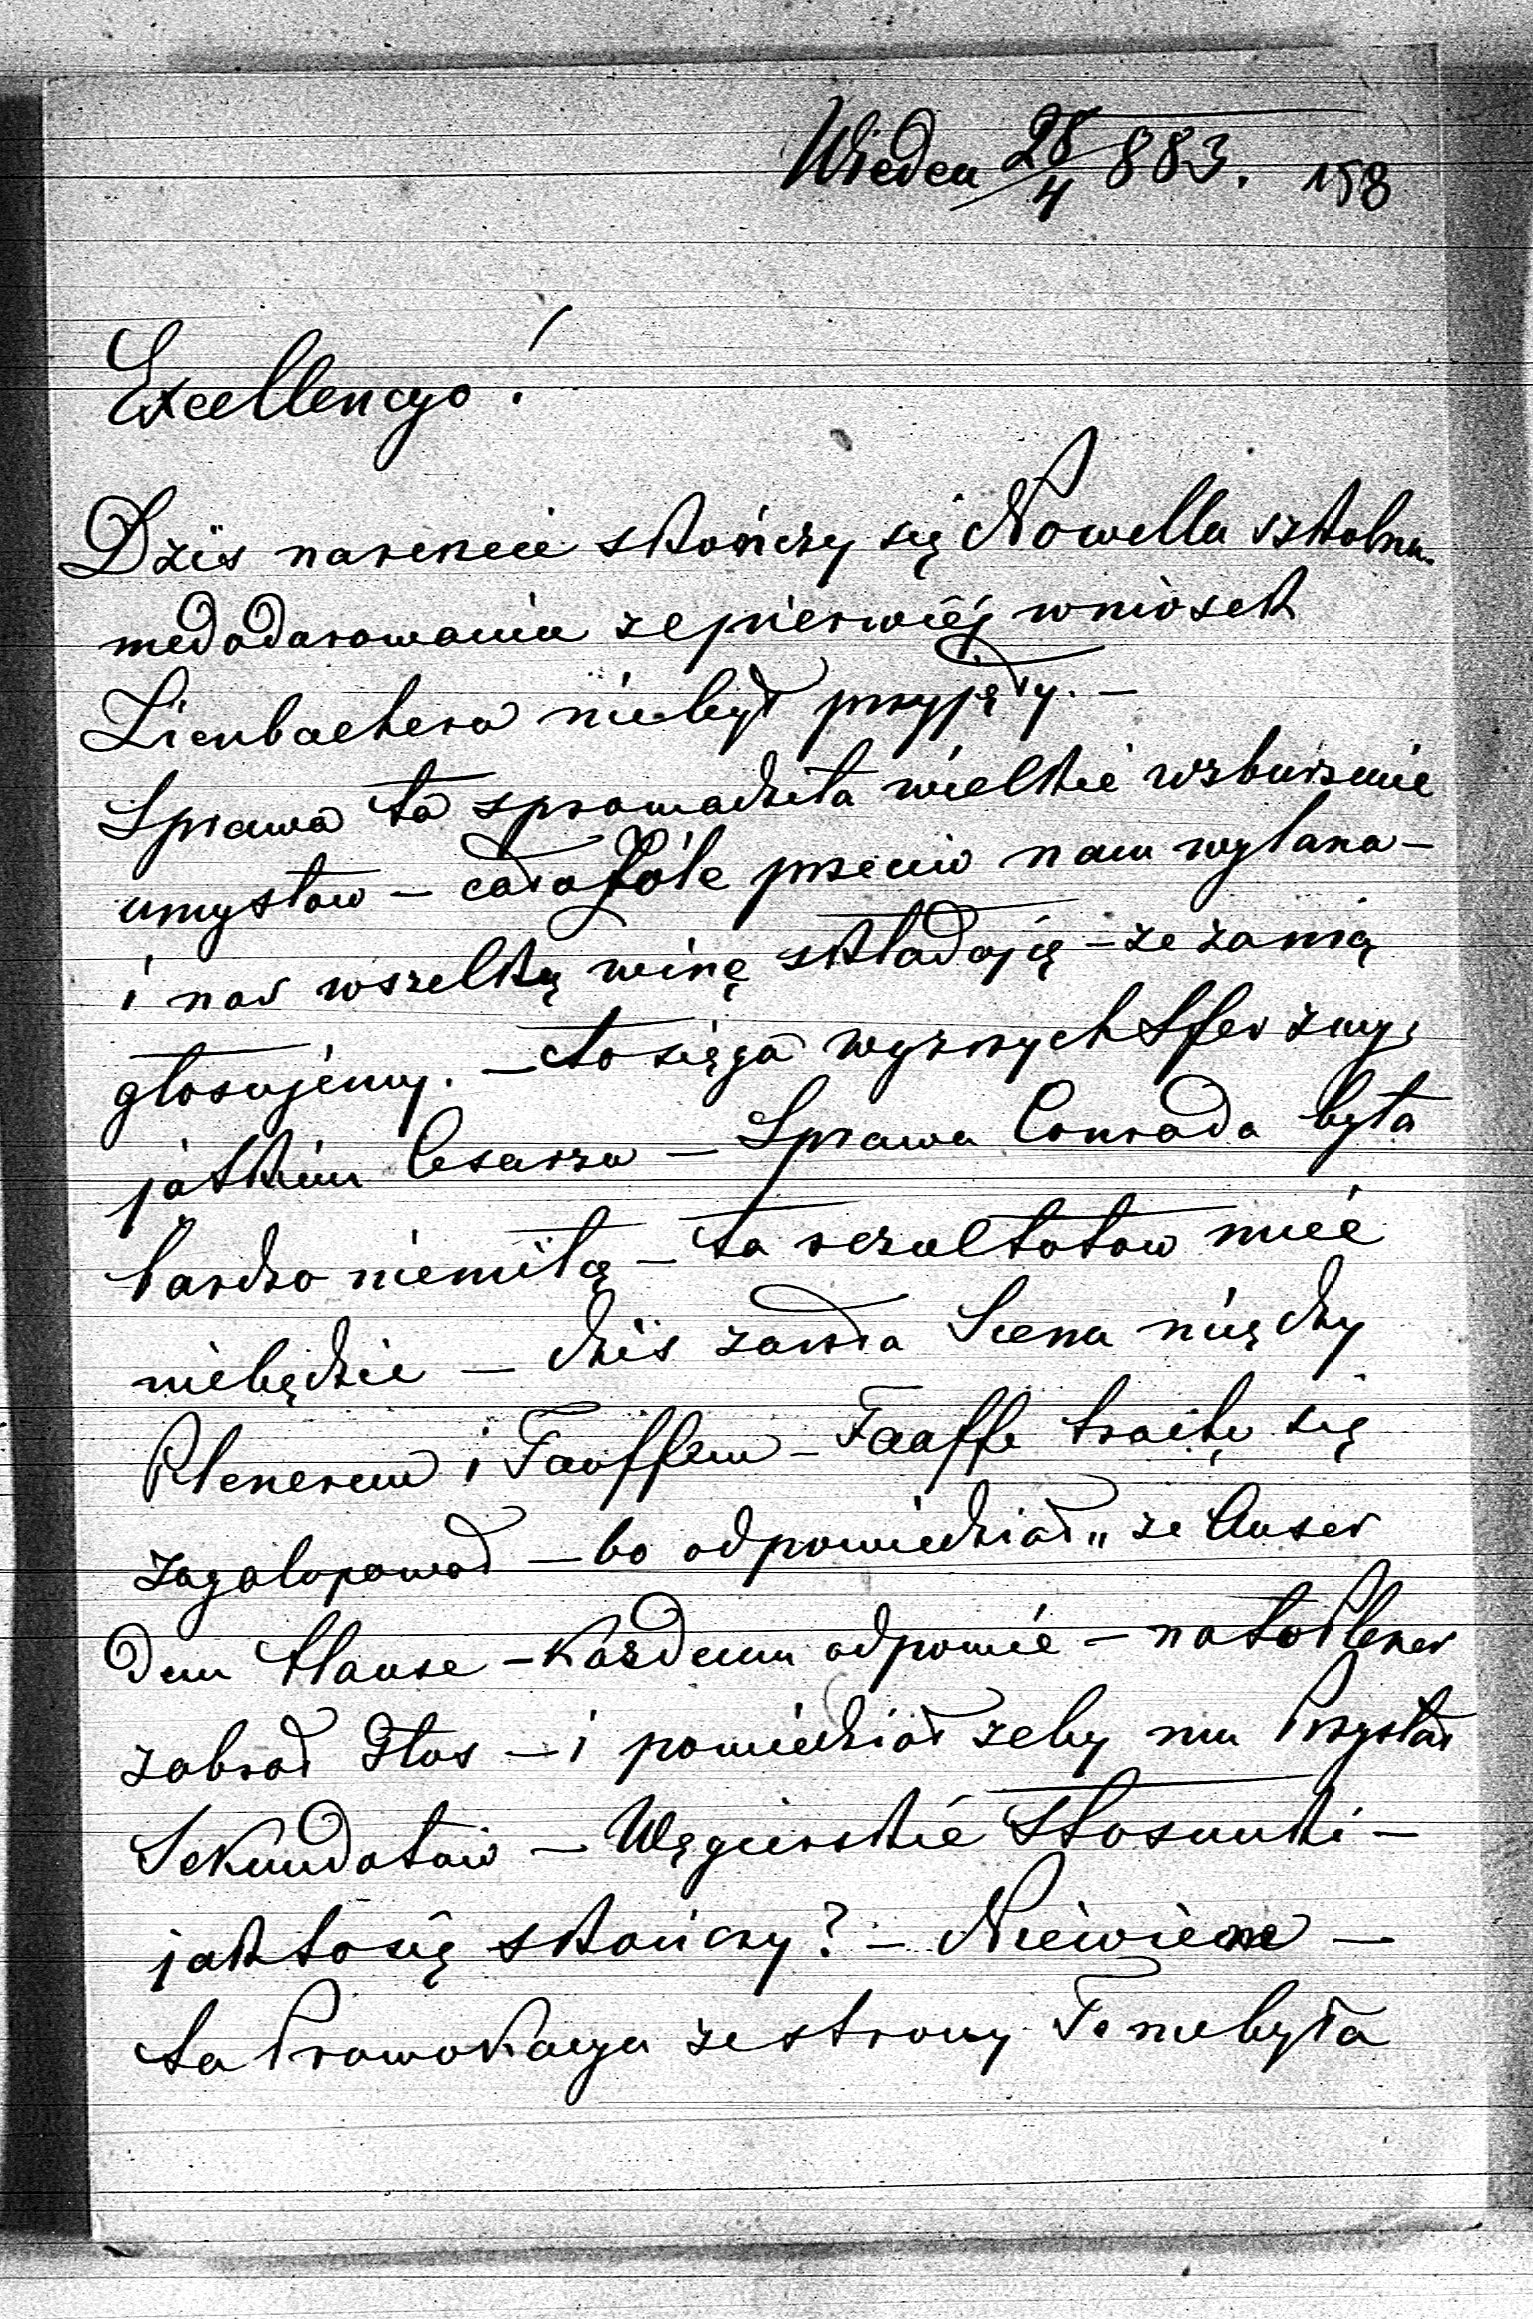 Wiedeń 28/4 883. 158
Excellencyo!
Dziś nareście skończy się Nowella szkolna
niedodarowania ze pierwiéj wniosek
Lienbachera niebył przyjęty. –
Sprawa ta sprowadziła wielkie wzburzenie
umysłow – cała Żółć przeciw nam wylana –
i nas wszelką winę składają – ze zanią
głosujemy. – to sięga wyzszych Sfer z wy-
jątkiem Cesarza – Sprawa Conrada była
bardzo niemiłą – ta rezultatow mieć
niebędzie – dziś zaszła Scena między
Plenerem i Taaffem – Taaffe trochę się
zagalopował – bo odpowiedział „ ze Ausser
dem Hause – Kazdemu odpowie – na to Plener
zabrał Głos – i powiedział zeby mu Przysłał
Sekundatow – Węgierskié Stosunki –
jak to się skończy? – Niewiem –
ta Prowokacya ze strony T. niebyła